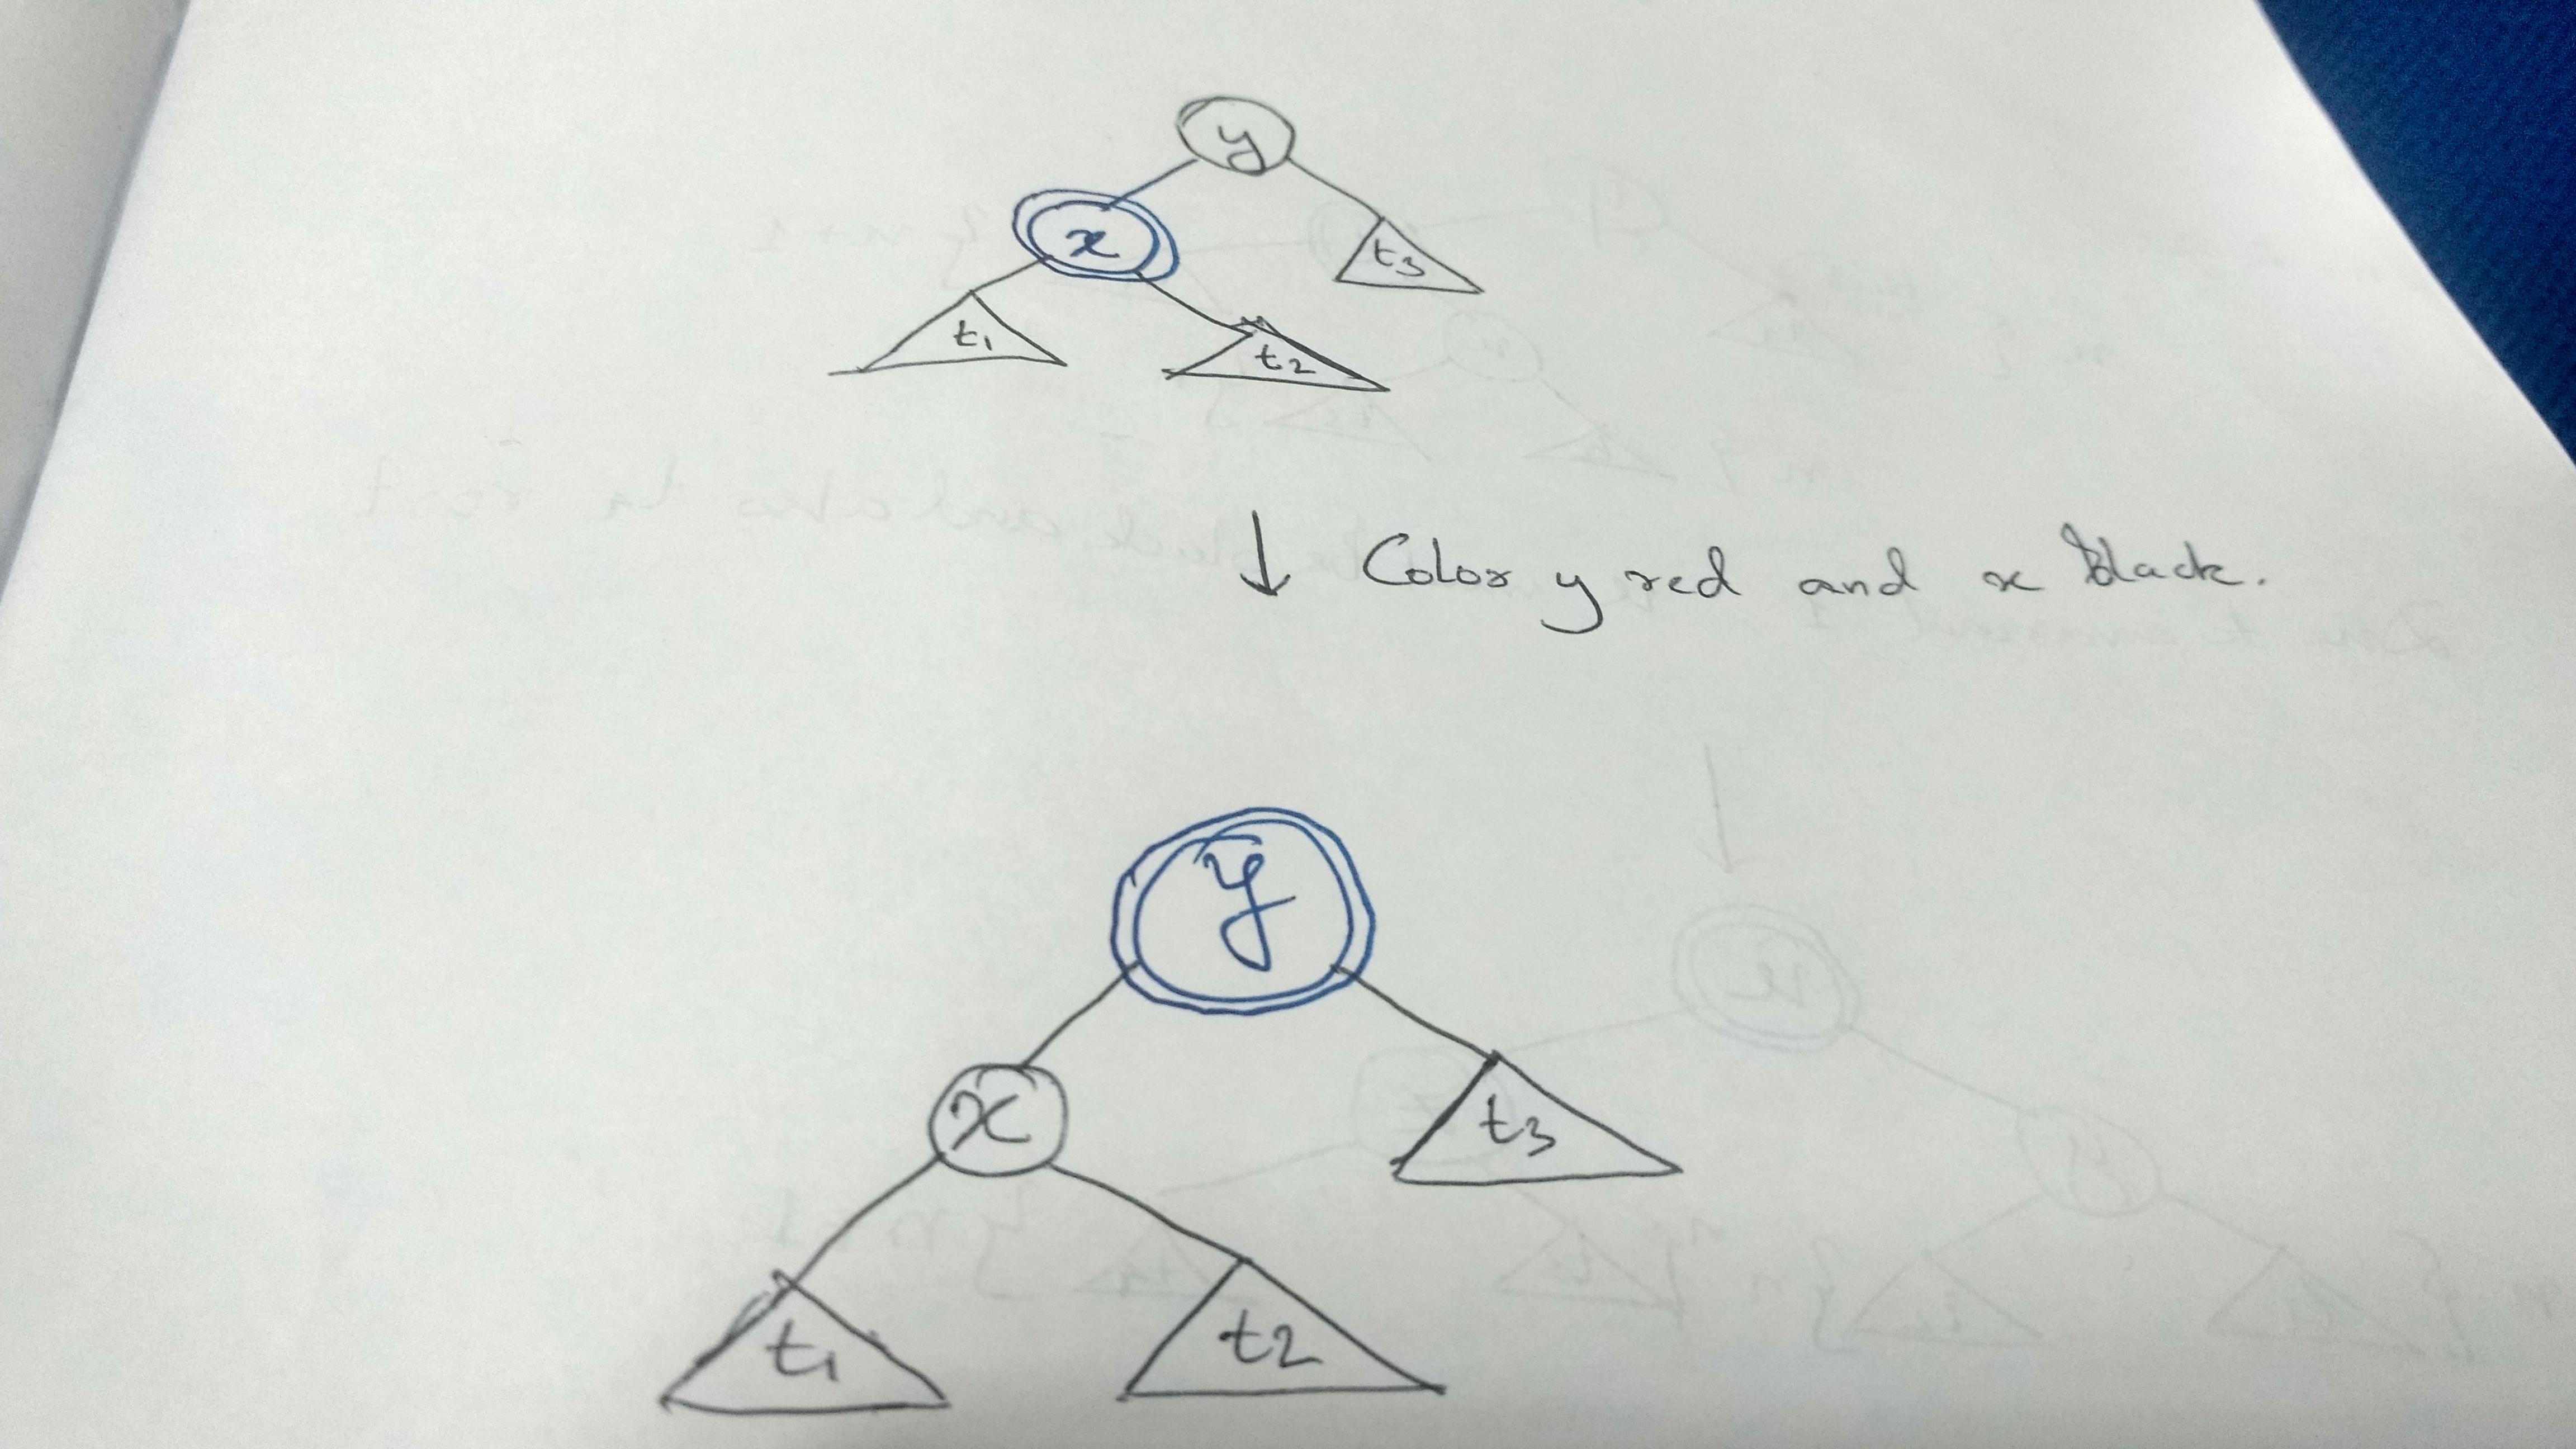 y
x
t3
t1
t2
↓ Color y red and x black.
y
x
t3
t1
t2